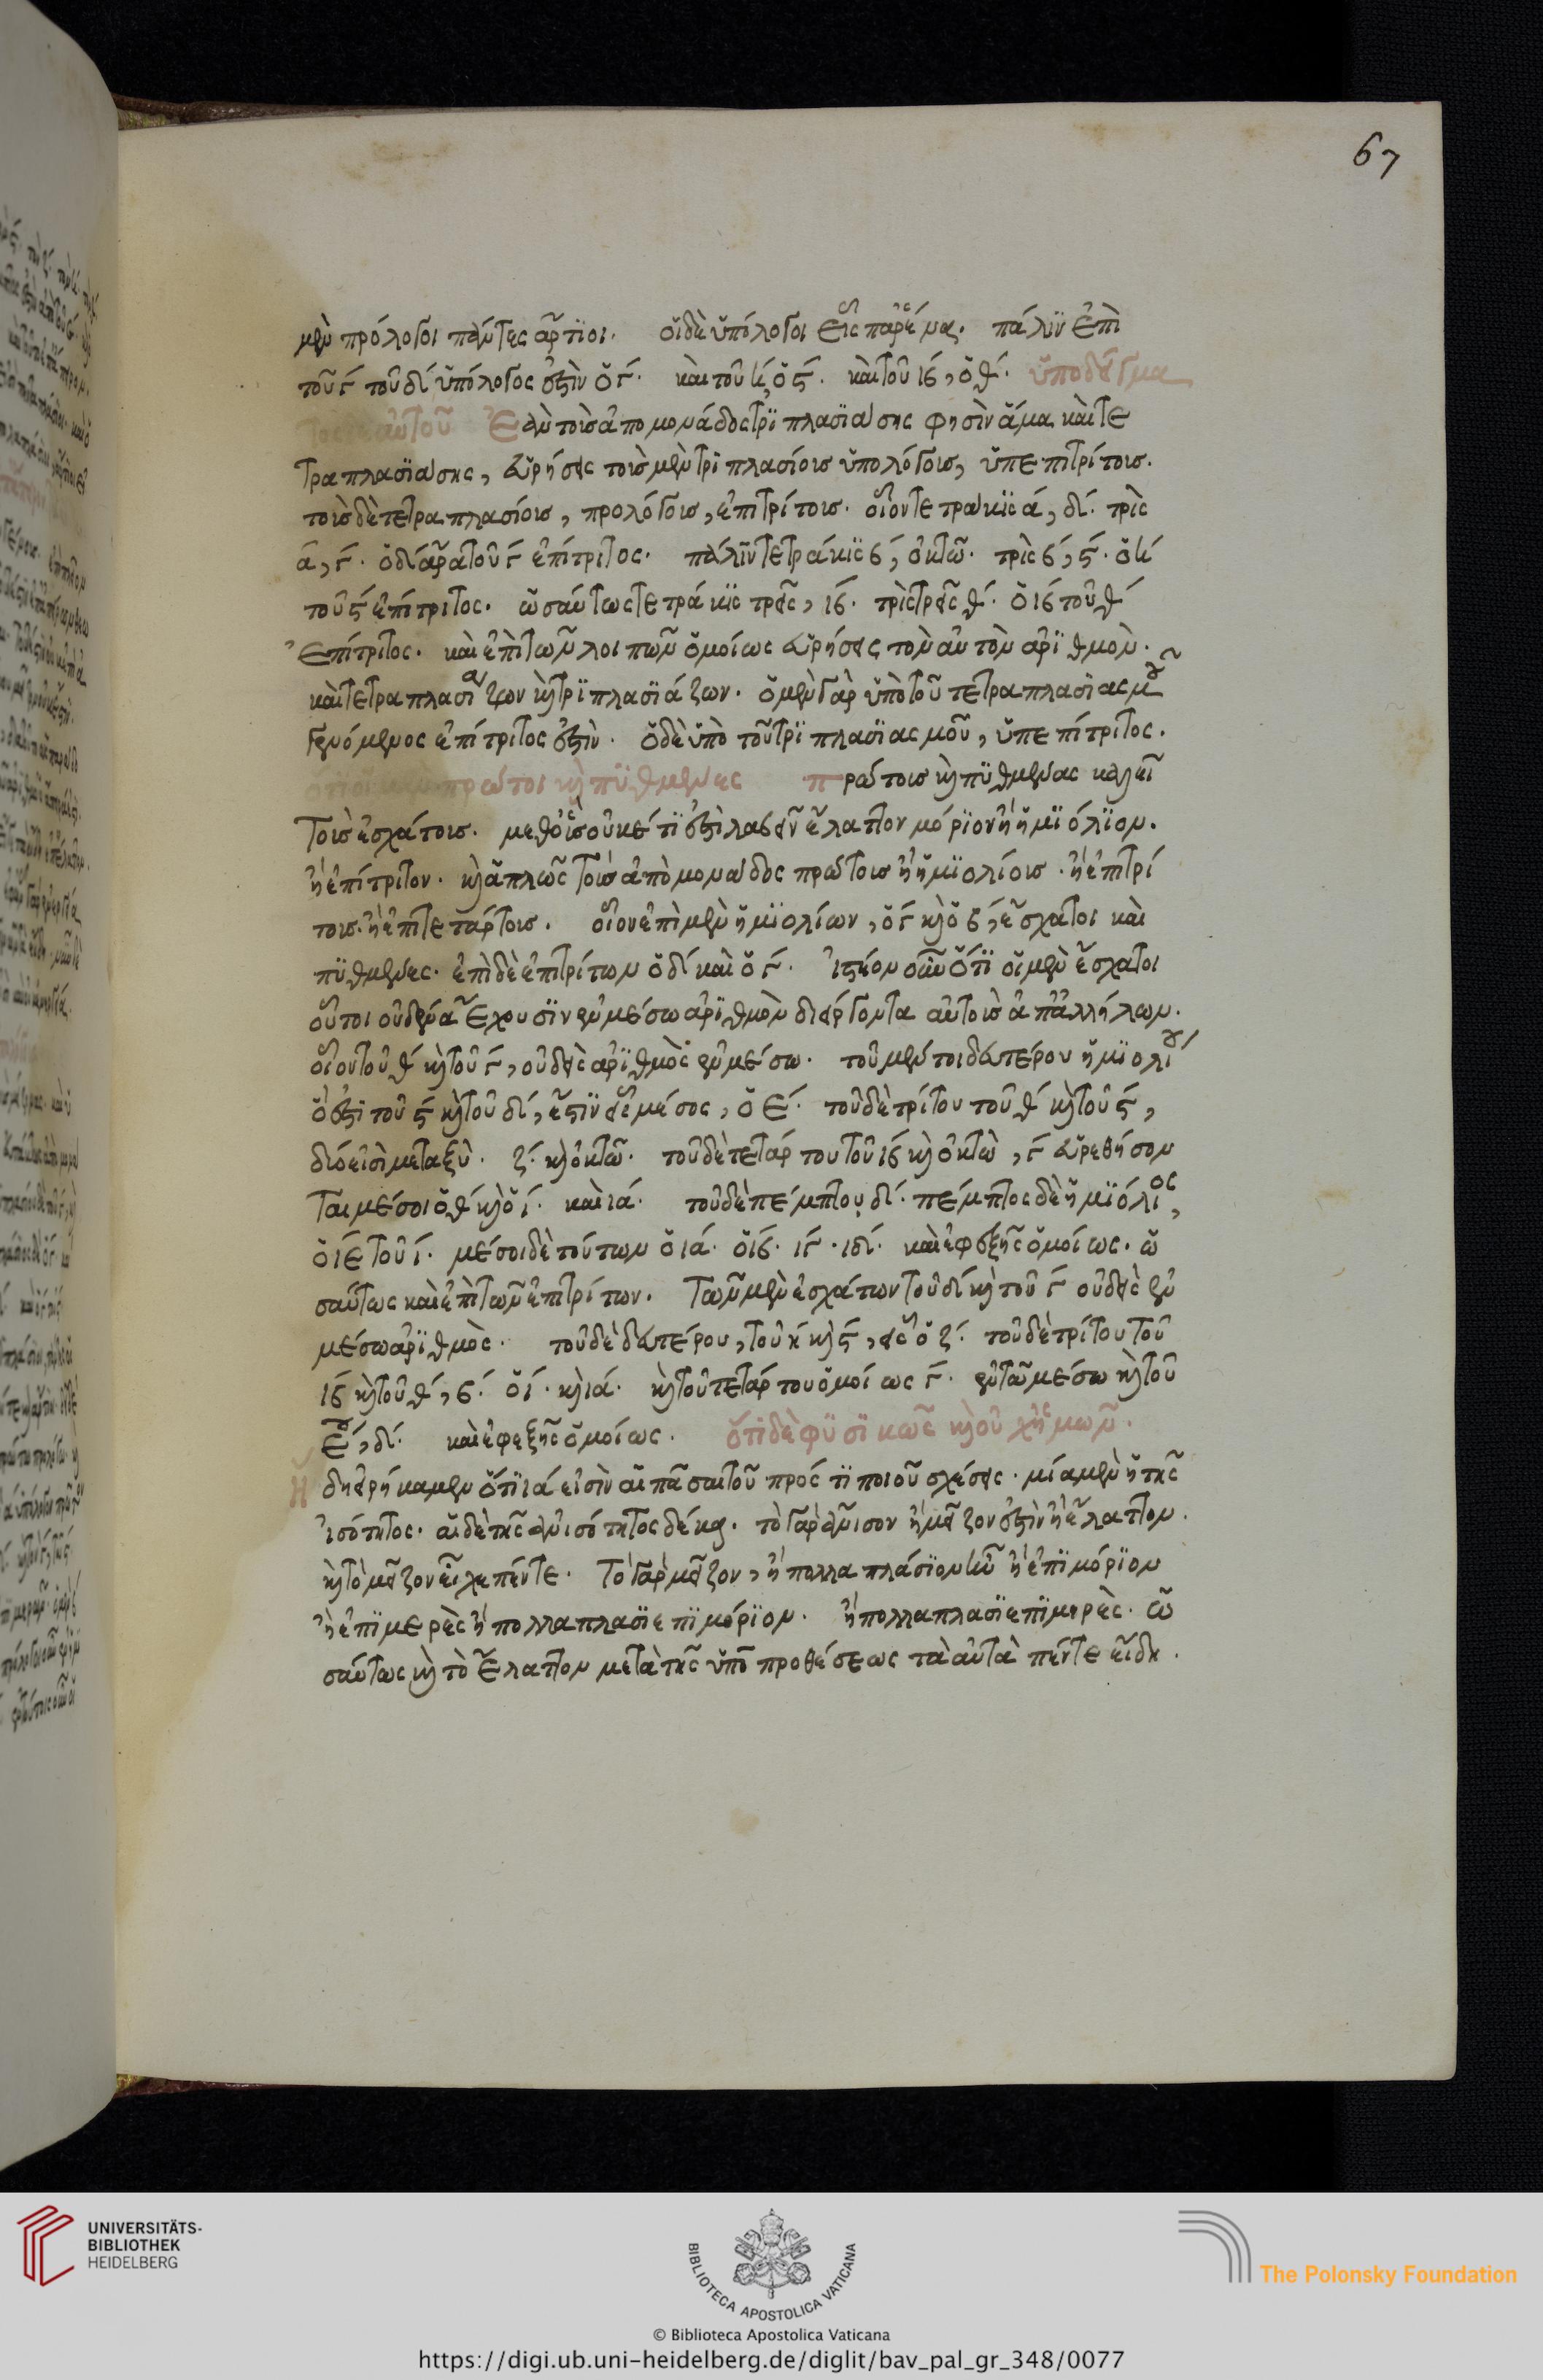 67
μὲν πρόλογοι πάντες ἄρτιοι. οἱ δὲ ὑπόλογοι εἷς παρ' ἕνα. πάλιν ἐπὶ
τοῦ γ τοῦ δ ὑπόλογος ἐστὶν ὁ γ. καὶ τοῦ η, ὁ ϛ. καὶ τοῦ ιβ, ὁ θ. ὑπόδειγμα
αὐτοῦ Ἐὰν τοὺς ἀπὸ μονάδος τριπλασιάσῃς φησὶν ἅμα καὶ τε
τραπλασιάσῃς, εὑρήσεις τοὺς μὲν τριπλασίους ὑπολόγους, ὑπεπιτρίτους.
τοὺς δὲ τετραπλασίους, προλόγους, ἐπιτρίτους. οἷον τετράκις α, δ. τρὶς
α, γ. ὁ δ ἄρα τοῦ γ ἐπίτριτος. πάλιν τετράκις β, ὀκτώ. τρὶς β, ϛ. ὁ η
τοῦ ϛ ἐπίτριτος. ὡσαύτως τετράκις τρεῖς, ιβ. τρὶς τρεῖς θ. ὁ ιβ τοῦ θ
ἐπίτριτος. καὶ ἐπὶ τῶν λοιπῶν ὁμοίως εὑρήσεις τὸν αὐτὸν ἀριθμὸν.
καὶ τετραπλασιάζων καὶ τριπλασιάζων. ὁ μὲν γὰρ ὑπὸ τοῦ τετραπλασιασμοῦ
γενόμενος ἐπίτριτος ἐστὶν. ὁ δὲ ὑπὸ τοῦ τριπλασιασμοῦ, ὑπεπίτριτος.
πρῶτοι καὶ πυθμένες πρώτους καὶ πυθμένας καλεῖ
τοὺς ἐσχάτους. μεθ' οὓς οὐκέτι ἐστὶ λαβεῖν ἔλαττον μόριον ἢ ἡμιόλιον.
ἢ ἐπίτριτον. καὶ ἁπλῶς τοὺς ἀπὸ μονάδος πρώτους ἢ ἡμιολίους. ἢ ἐπιτρί
τους. ἢ ἐπιτετάρτους. οἷον ἐπὶ μὲν ἡμιολίων, ὁ γ καὶ ὁ β, ἔσχατοι καὶ
πυθμένες. ἐπὶ δὲ ἐπιτρίτων ὁ δ καὶ ὁ γ. ἰστέον οὖν ὅτι οἱ μὲν ἔσχατοι
οὗτοι οὐδένα ἔχουσιν ἐν μέσω ἀριθμὸν διείργοντα αὐτοὺς ἀπ' ἀλλήλων.
οἷον τοῦ β καὶ τοῦ γ, οὐδεὶς ἀριθμὸς ἐν μέσω. τοῦ μέντοι δευτέρου ἡμιολίου
ὅ ἐστι τοῦ ϛ καὶ τοῦ δ, ἔστιν εἷς μέσος, ὁ ε. τοῦ δὲ τρίτου τοῦ θ καὶ τοῦ ϛ,
δύο εἰσὶ μεταξὺ. ζ. καὶ ὀκτώ. τοῦ δὲ τετάρτου τοῦ ιβ καὶ ὀκτὼ, γ εὑρεθήσον
ται μέσοι ὁ θ καὶ ὁ ι. καὶ ια. τοῦ δὲ πέμπτου δ. πέμπτος δὲ ἡμιόλιος,
ὁ ιε τοῦ ι. μέσοι δὲ τούτων ὁ ια. ὁ ιβ. ιγ. ιδ. καὶ ἐφεξῆς ὁμοίως. ὡ
σαύτως καὶ ἐπὶ τῶν ἐπιτρίτων. τῶν μὲν ἐσχάτων τοῦ δ καὶ τοῦ γ οὐδεὶς ἐν
μέσω ἀριθμὸς. τοῦ δὲ δευτέρου, τοῦ η καὶ ϛ, εἷς ὁ ζ. τοῦ δὲ τρίτου τοῦ
ιβ καὶ τοῦ θ, β. ὁ ι. καὶ ια. καὶ τοῦ τετάρτου ὁμοίως γ. ἐν τῶ μέσω καὶ τοῦ
ε, δ. καὶ ἐφεξῆς ὁμοίως. ὅτι δὲ φυσικῶς καὶ οὐχ ἡμῶν.
Ἤδη εἰρήκαμεν ὅτι ια εἰσὶν αἱ πᾶσαι τοῦ πρός τι ποιοῦ σχέσεις. μία μὲν ἡ τῆς
ἰσότητος. αἱ δὲ τῆς ἀνισότητος δέκα. τὸ γὰρ ἄνισον ἢ μεῖζον ἐστὶν ἢ ἔλαττον.
καὶ τὸ μεῖζον εἶχε πέντε. τὸ γὰρ μεῖζον, ἢ πολλαπλάσιον ἦν ἢ ἐπιμόριον
ἢ ἐπιμερὲς ἢ πολλαπλασιεπιμόριον. ἢ πολλαπλασιεπιμερὲς. ὡ
σαύτως καὶ τὸ ἔλαττον μετὰ τῆς ὑπὸ προθέσεως τὰ αὐτὰ πέντε εἴδη.
UNIVERSITÄTS-
BIBLIOTHEK
HEIDELBERG
BIBLIOTECA APOSTOLICA VATICANA
The Polonsky Foundation
© Biblioteca Apostolica Vaticana
https://digi.ub.uni-heidelberg.de/diglit/bav_pal_gr_348/0077